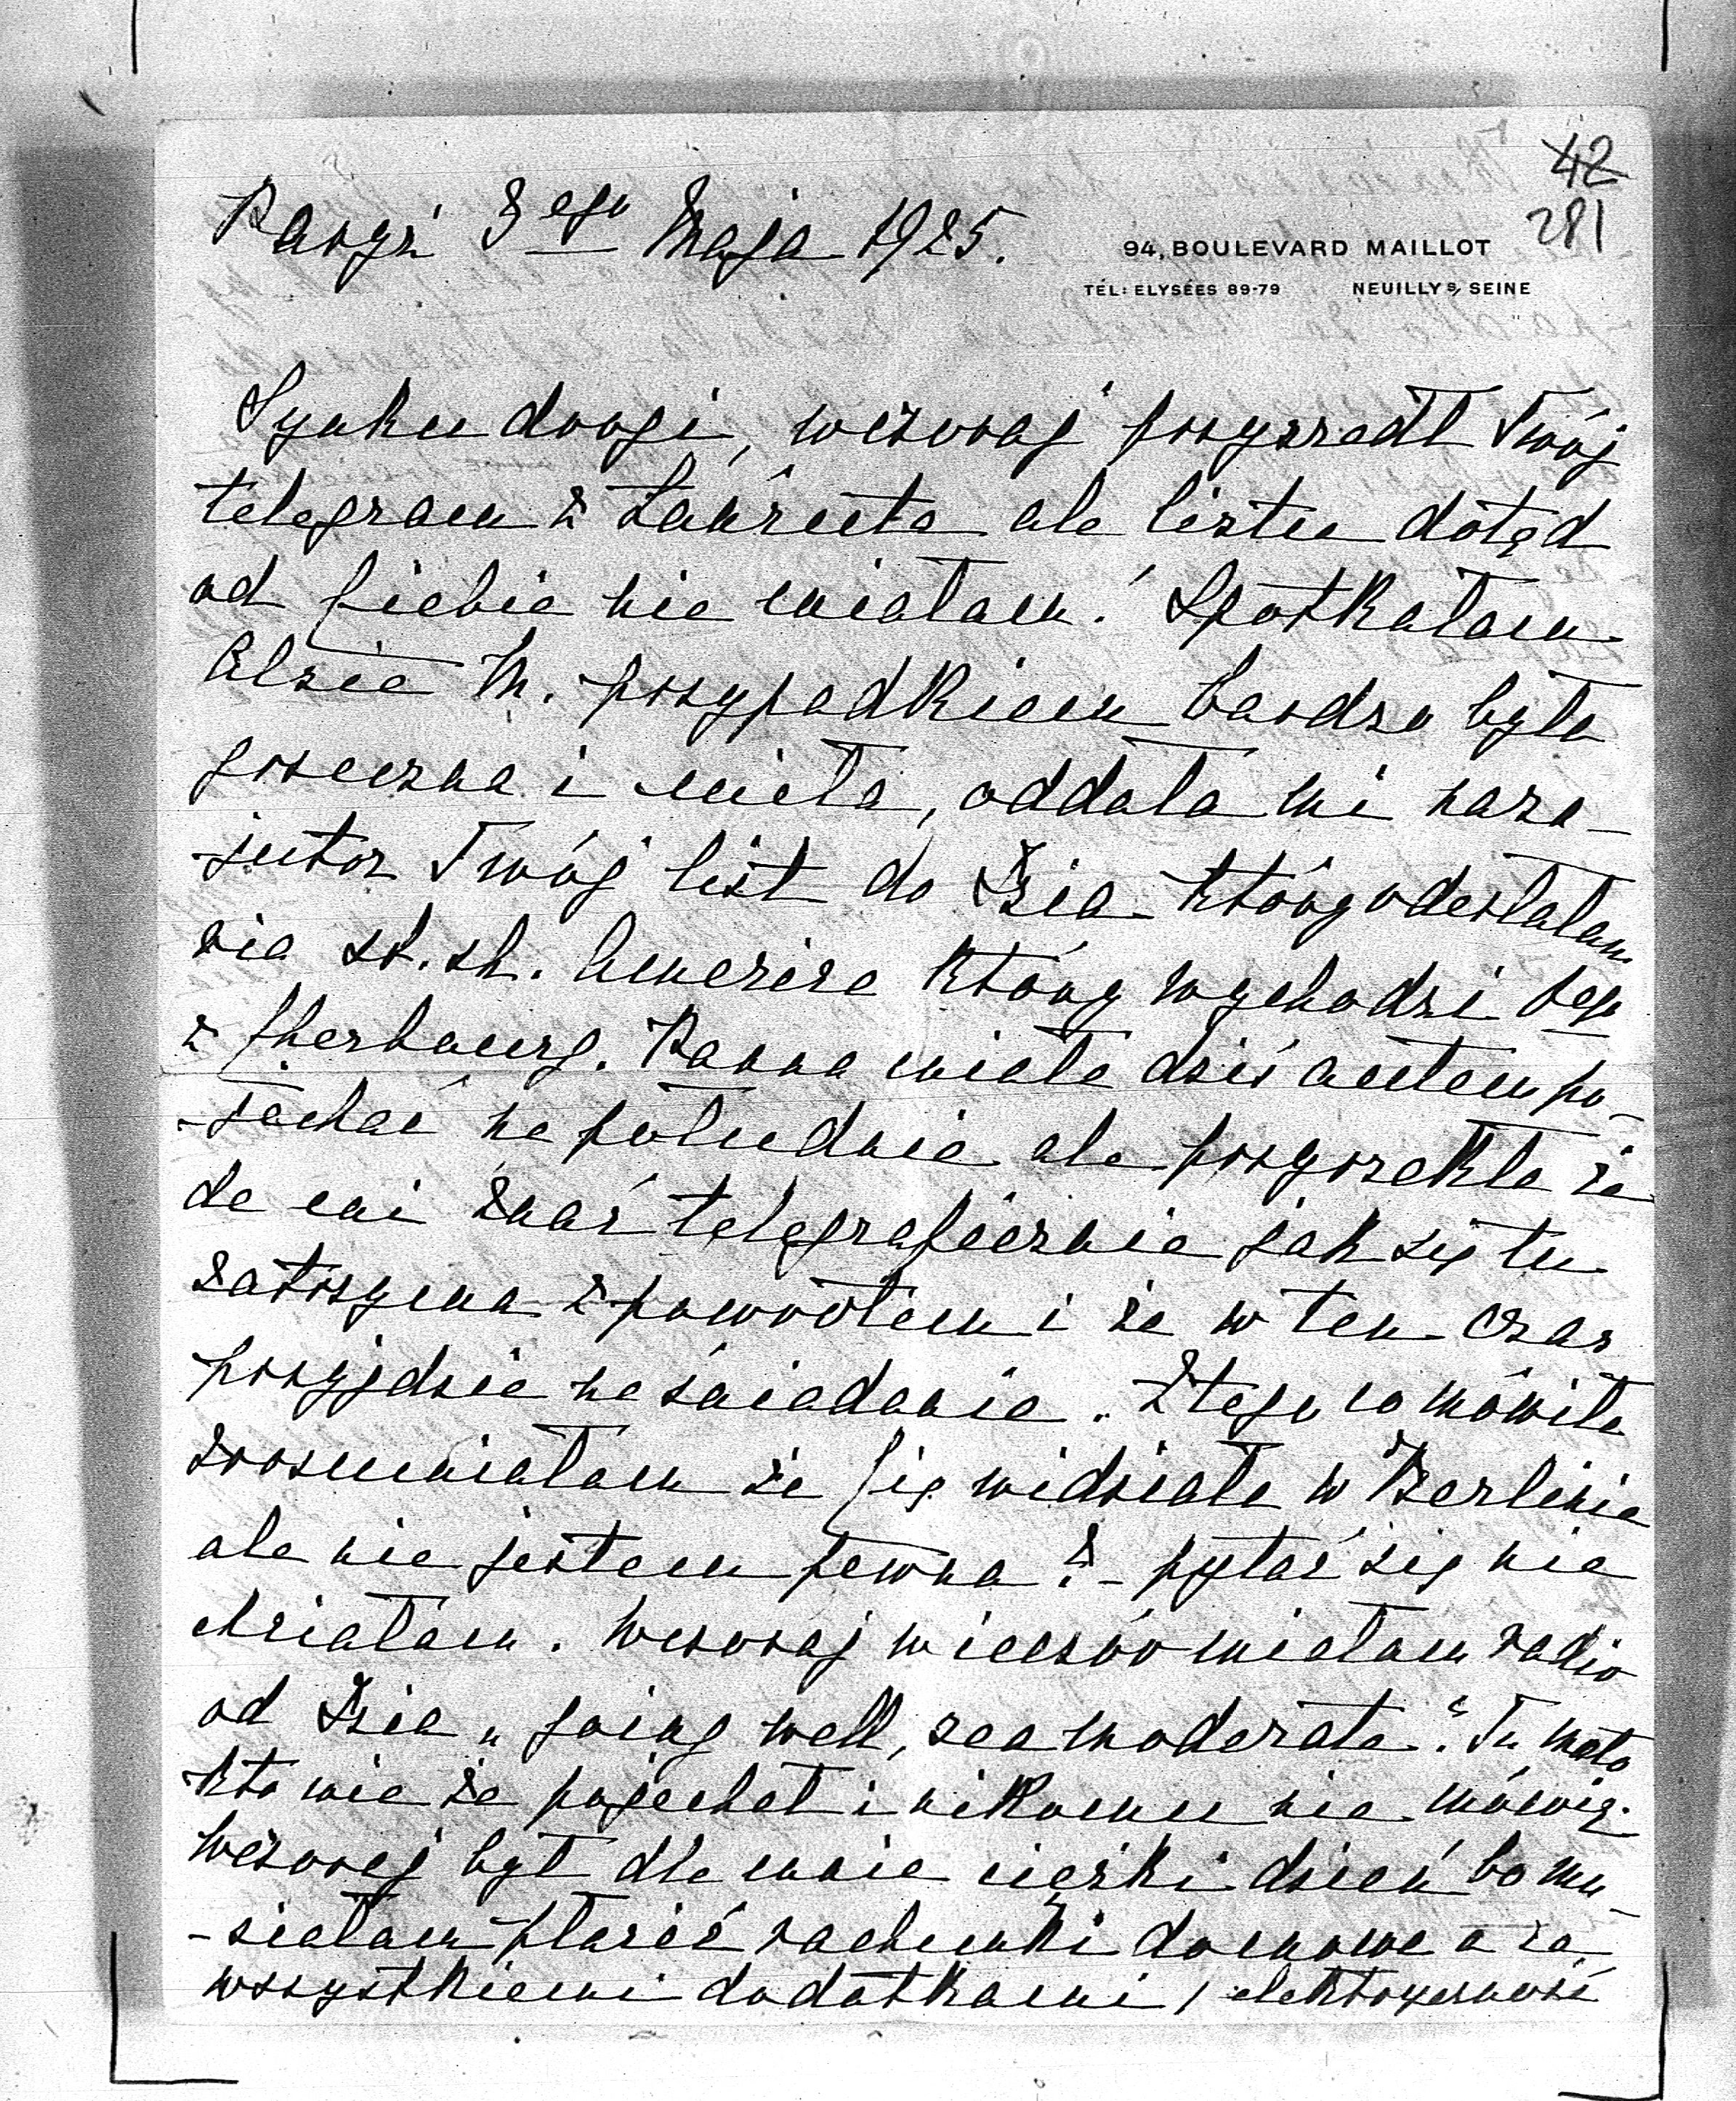 42
281
Paryż 3ego Maja 1925.
94, BOULEVARD MAILLOT
TÉL: ELYSÉES 89-79 NEUILLY S/ SEINE
Synku drogi, wczoraj przyszedł Twój
telegram z Łańcuta ale listu dotąd
od Ciebie nie miałam. Spotkałam
Alzię M. przypadkiem bardzo była
grzeczna i miła, oddała mi naza-
-jutrz Twój list do Dzia który odesłałam
via st. sh. który wychodzi
z Cherbourg. Panna miała dziś autem po-
-jechać na południe ale przyrzekła że
da mi znać telegraficznie jak się tu
zatrzyma z powrotem i że w ten czas
przyjdzie na śniadanie. Z tego co mówiła
zrozumiałam że Cię widziała w Berlinie
ale nie jestem pewna? – pytać się nie
chciałam. Wczoraj wieczór miałam radio
od Dzia „going well, sea moderate". Tu mało
kto wie że pojechał i nikomu nie mówię.
Wczoraj był dla mnie ciężki dzień bo mu-
-siałam płacić rachunki domowe a ze
wszystkiemi dodatkami / elektryczność